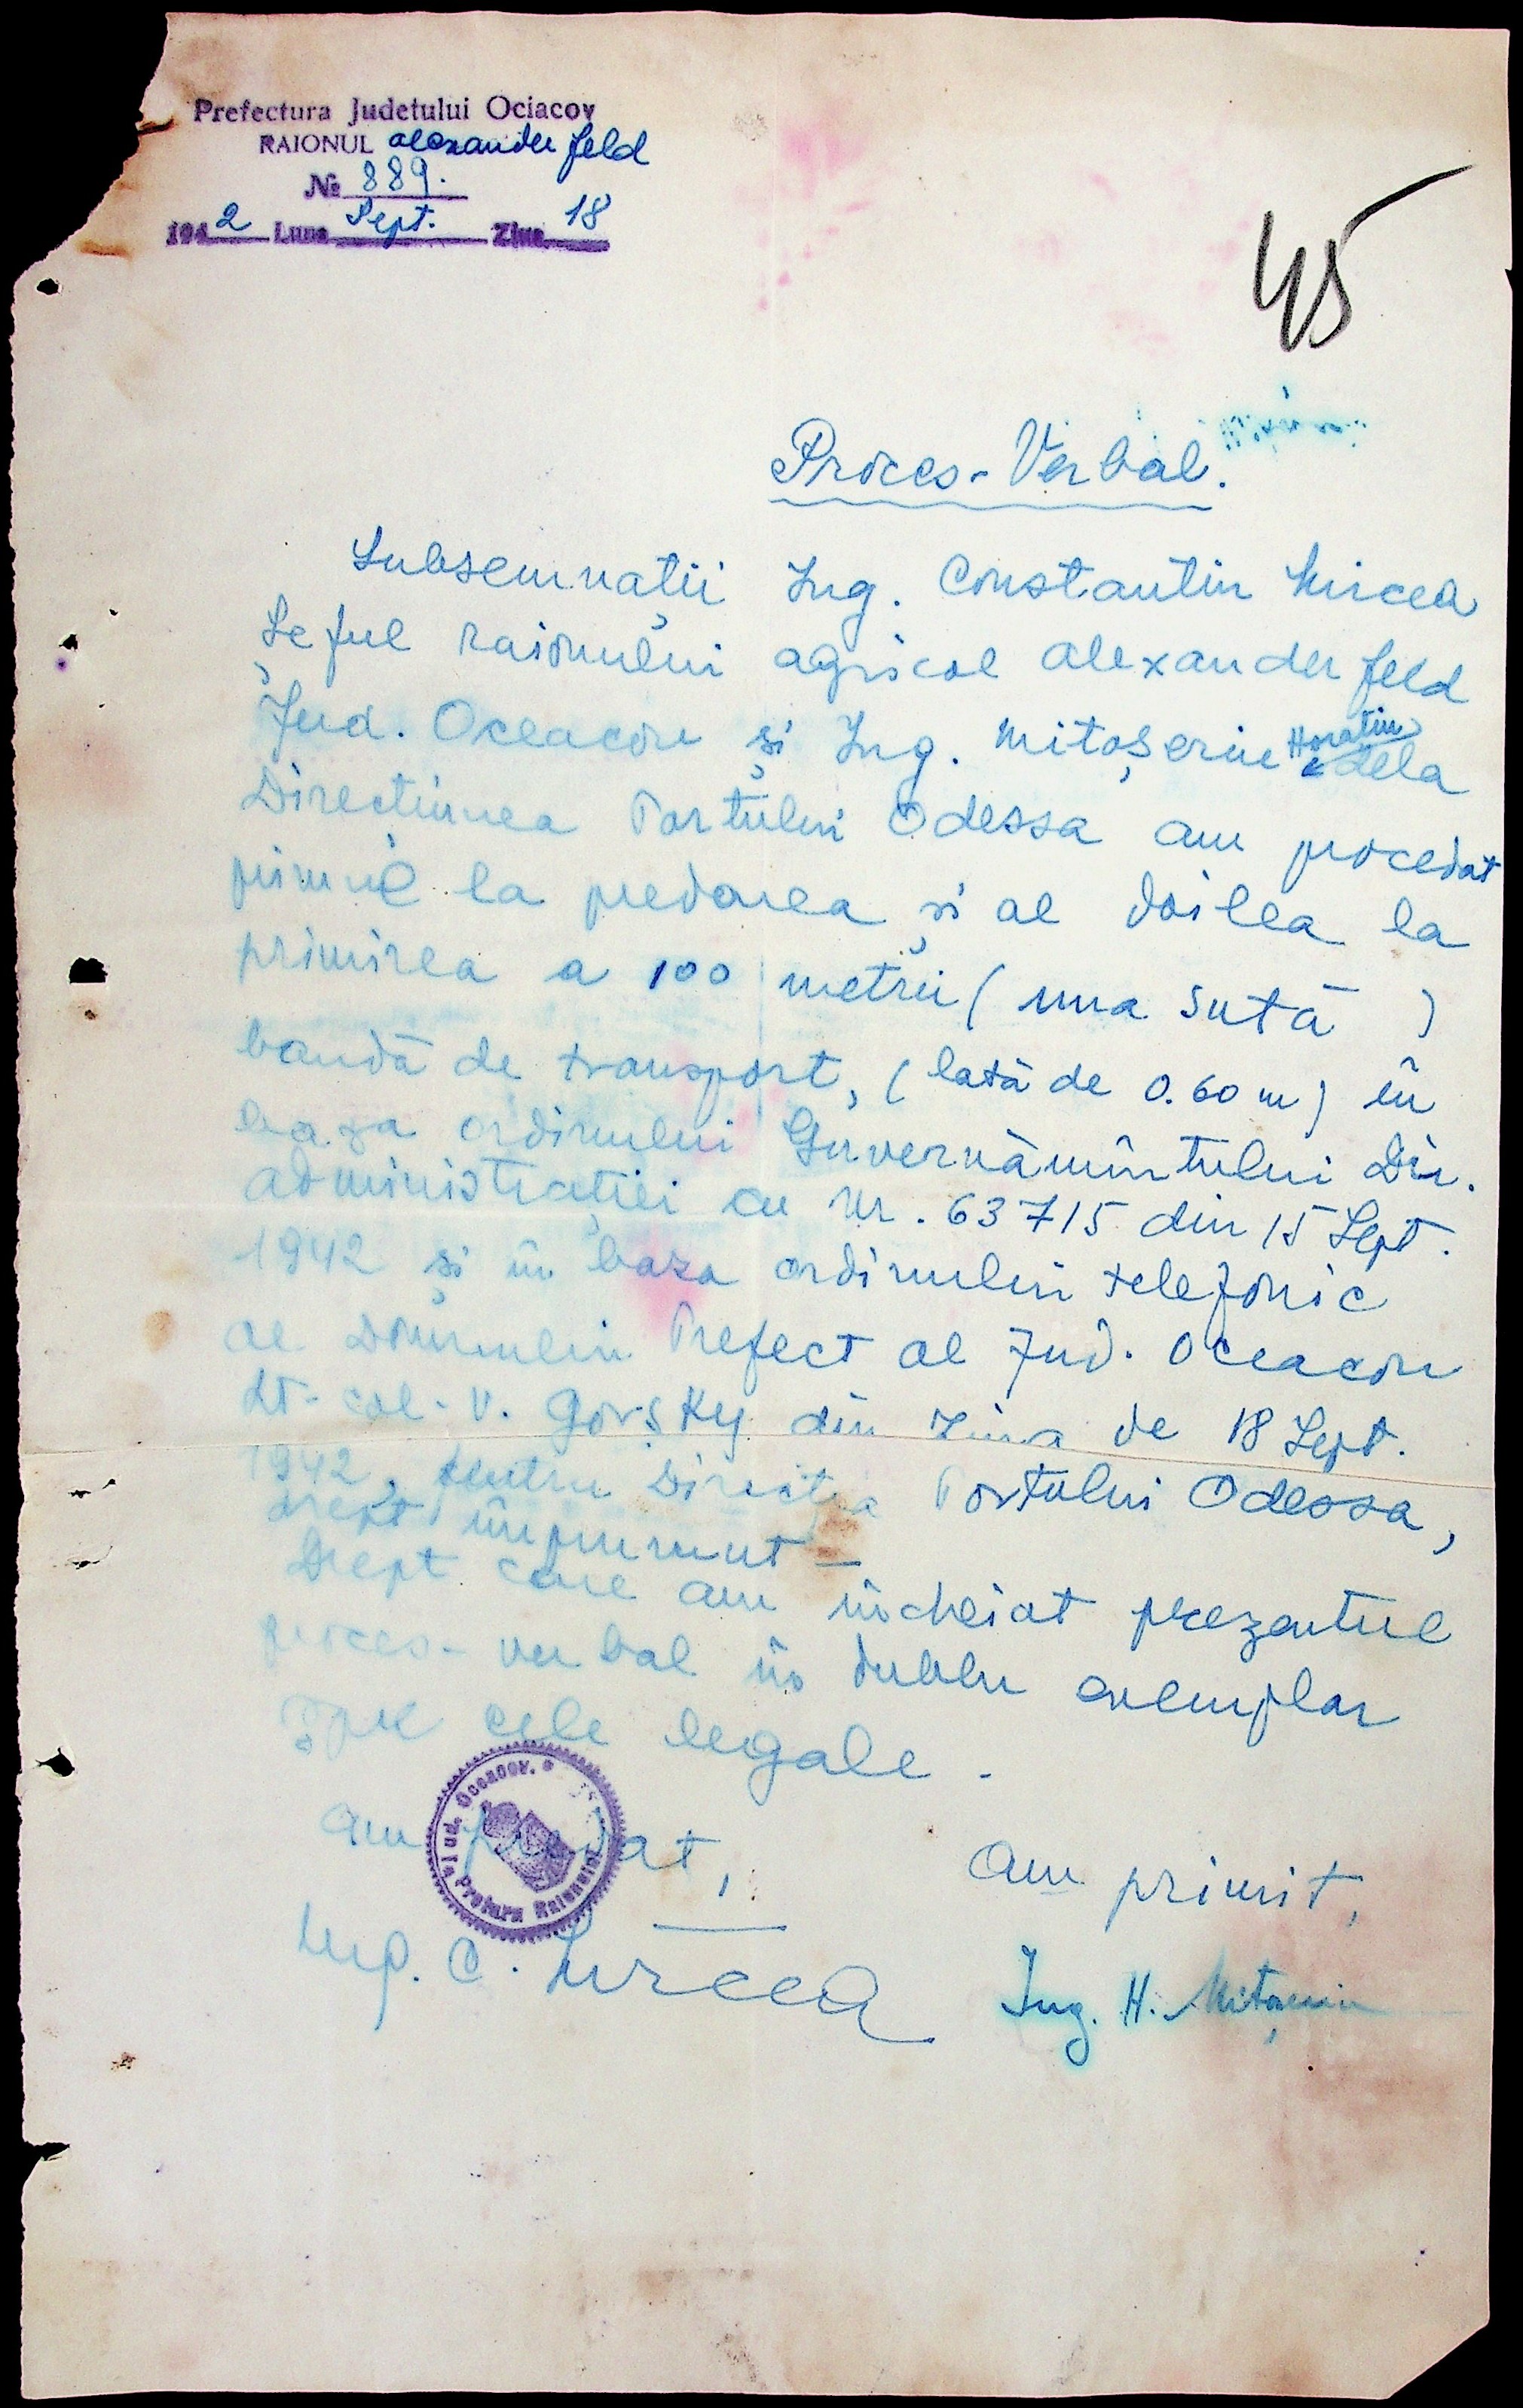 Prefectura Judetului Ociacov
RAIONUL Alexanderfeld
№ 889.
1942 Luna Sept. Ziua 18
45
Proces-Verbal.
Subsemnații Ing. Constantin Mircea
Șeful raionului agricol Alexanderfeld
Jud. Oceacov și Ing. Mitoșeriu Horatiu dela
Directiunea Portului Odessa am procedat
primul la predarea și al doilea la
primirea a 100 metrii (una sută )
bandă de transport, (lată de 0.60 m) în
baza ordinului Guvernămîntului Dir.
administrației cu Nr. 63715 din 15 Sept.
1942 și în baza ordinului telefonic
al Domnului Prefect al Jud. Oceacov
Lt-col-V. Gorsky din ziua de 18 Sept.
1942, pentru Direcția Portului Odessa,
drept împrumut —
Drept care am încheiat prezentul
proces-verbal în dublu exemplar
spre cele legale.
Am predat,
Am primit,
Ing. C. Mircea
Ing. H. Mitoșeriu
Jud. Oceacov.
Pretura Raionului